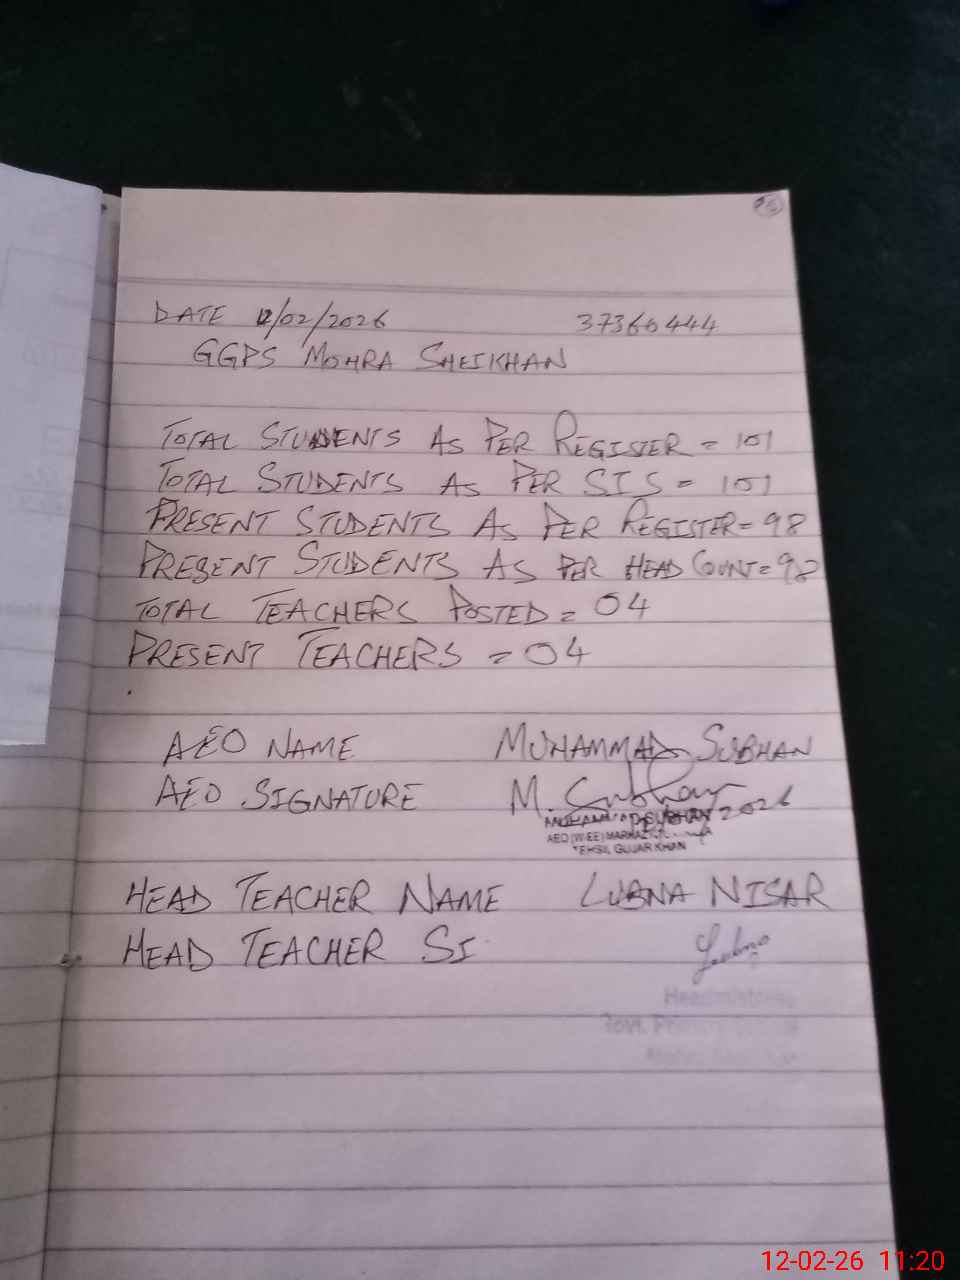 DATE 12/02/2026 37360444
GGPS MOHRA SHEIKHAN
TOTAL STUDENTS AS PER REGISTER = 101
TOTAL STUDENTS AS PER SIS = 101
PRESENT STUDENTS AS PER REGISTER = 98
PRESENT STUDENTS AS PER HEAD COUNT = 98
TOTAL TEACHERS POSTED = 04
PRESENT TEACHERS = 04
AEO NAME MUHAMMAD SUBHAN
AEO SIGNATURE M. Subhan
2026
MUHAMMAD SUBHAN
AEO (W-EE) MARKAZ
TEHSIL GUJAR KHAN
HEAD TEACHER NAME LUBNA NISAR
HEAD TEACHER SI
Lubna
Headmistress
Govt. Primary School
12-02-26 11:20